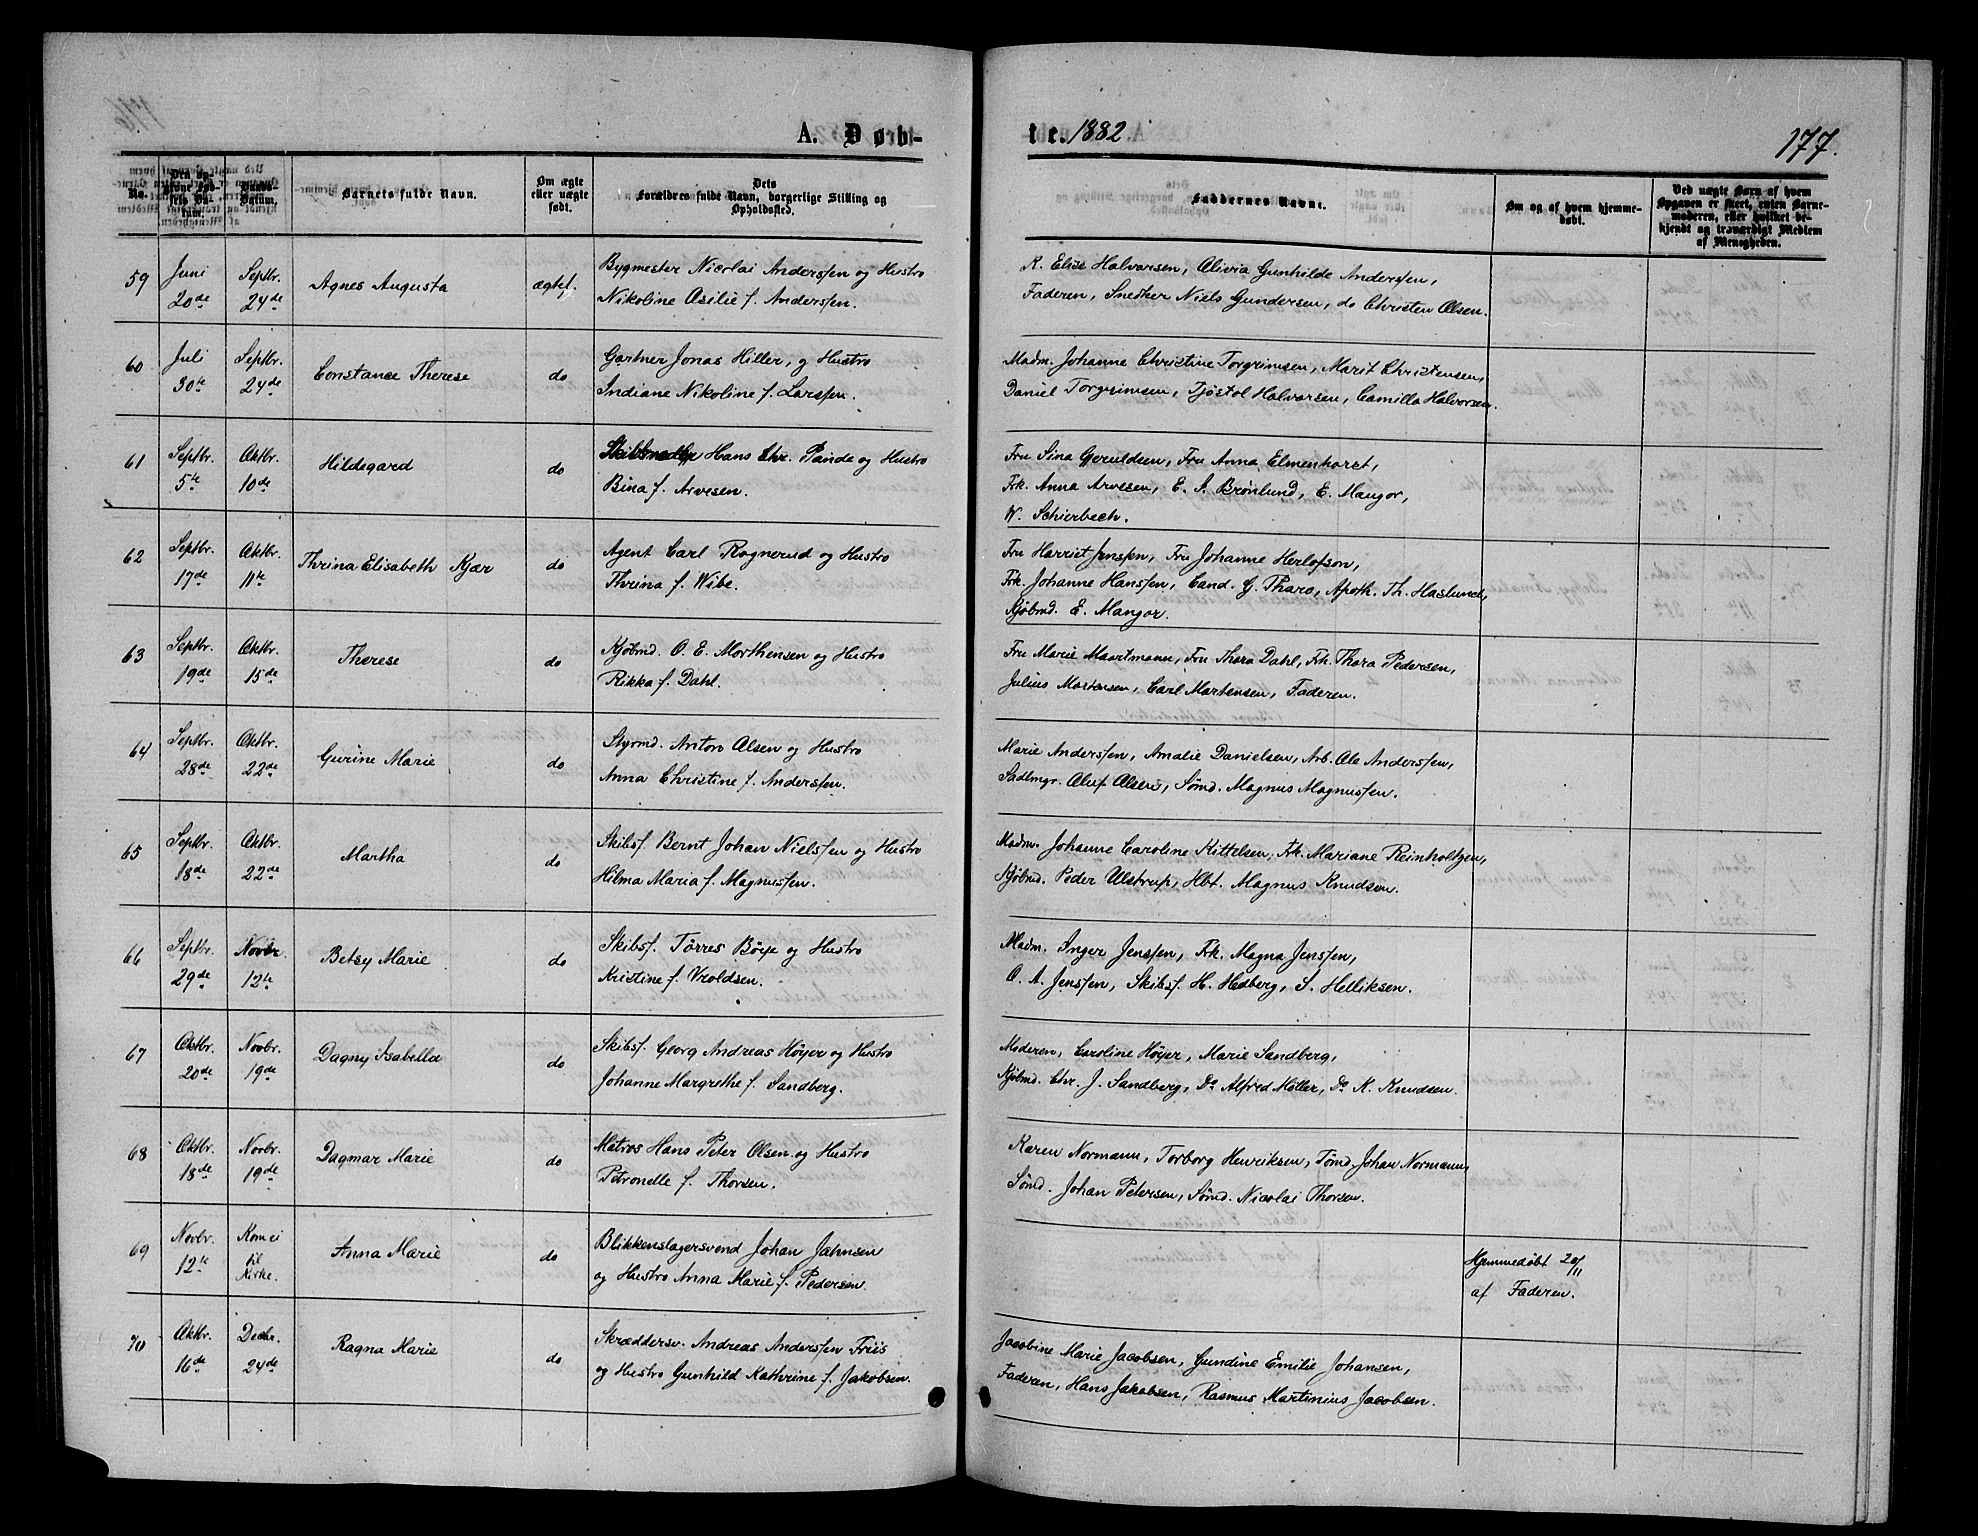 A. Døb-
te. 1882
177.
No.
Den op-
givne Fød-
sels Da-
tum.
Daabs-
Datum.
Barnets fulde Navn.
Om ægte
eller uægte
født.
Dets
Forældres fulde Navn, borgerlige Stilling og
Opholdssted.
Faddernes Navne.
Om og af hvem hjemme-
døbt.
Ved uægte Barn af hvem
Opgaven er skeet, enten Barne-
moderen, eller hvilket be-
kjendt og troværdigt Medlem
af Menigheden.
59 Juni Septbr. Agnes Augusta ægtef. Bygmester Nicolai Anderssen og Hustro K. Elise Halvorsen, Olivia Gunhilde Anderssen,
20de 24de Nikoline Osilie f. Anderssen. Faderen, Snedker Niels Gundersen, do Christen Olsen.
60 Juli Septbr. Constance Therese do Gartner Jonas Hiller, og Hustro Madm. Johanne Christine Torgrimsen, Marit Christensen,
30te 24de Indiane Nikoline f. Larssen. Daniel Torgrimsen, Tjøstol Halvorsen, Camilla Halvorsen.
61 Septbr. Oktbr. Hildegard do Hans Chr. Pande og Hustro Fru Sina Geruldsen, Fru Anna Elmenhorst,
5te 10de Bina f. Arvesen. Frk. Anna Arvesen, E. A. Brønlund, E. Mangor,
W. Schierbech.
62 Septbr. Oktbr. Thrina Elisabeth Kjær do Agent Carl Rognerud og Hustro Fru Harriet Jenssen, Fru Johanne Herlofson,
17de 11te Thrina f. Wibe. Frk. Johanne Hanssen, Cand. G. Tharo, Apoth. Th. Haslund,
Kjøbmd. E. Mangor.
63 Septbr. Oktbr. Therese do Kjøbmd. O. E. Morthensen og Hustro Fru Marie Maartmann, Fru Thora Dahl, Frk. Thora Pedersen,
19de 15de Rikka f. Dahl. Julius Mortensen, Carl Mortensen, Faderen.
64 Septbr. Oktbr. Gurine Marie do Styrmd. Anton Olsen og Hustro Marie Anderssen, Amalie Danielsen, Arb. Ole Anderssen,
28de 22de Anna Christine f. Anderssen. Sadlmgr. Oluf Olsen, Sømd. Magnus Magnussen.
65 Septbr. Oktbr. Martha do Skibsf. Bernt Johan Nielssen og Hustro Madm. Johanne Caroline Kittelsen, Frk. Mariane Reinholtzen,
18de 22de Hilma Maria f. Magnussen. Kjøbmd. Peder Ulstrup, Hbt. Magnus Knudsen.
66 Septbr. Novbr. Betsy Marie do Skibsf. Tørres Böye og Hustro Madm. Inger Jenssen, Frk. Magna Jenssen,
29de 12te Kristine f. Vroldsen. O. A. Jenssen, Skibsf. H. Hedberg, S. Helliksen.
67 Oktbr. Novbr. Dagny Isabella do Skibsf. Georg Andreas Höyer og Hustro Moderen, Caroline Höyer, Marie Sandberg,
20de 19de Johanne Margrethe f. Sandberg. Kjøbmd. Chr. J. Sandberg, Do Alfred Møller, Do K. Knudsen.
68 Oktbr. Novbr. Dagmar Marie do Matros Hans Peter Olsen og Hustro Karen Normann, Torborg Henriksen, Tømd. Johan Normann,
18de 19de Petronelle f. Thorsen. Sømd. Johan Petersen, Sømd. Nicolai Thorsen.
69 Novbr. Kom ei Anna Marie do Blikkenslagersvend Johan Jahnsen Hjemmedøbt 20/11
12te til Kirke. og Hustro Anna Marie f. Pedersen. af Faderen.
70 Oktbr. Decbr. Ragna Marie do Skræddersv. Andreas Anderssen Friis Jacobine Marie Jacobsen, Gundine Emilie Johansen,
16de 24de og Hustro Gunhild Kathrine f. Jakobsen. Faderen, Hans Jakobsen, Rasmus Martinius Jacobsen.